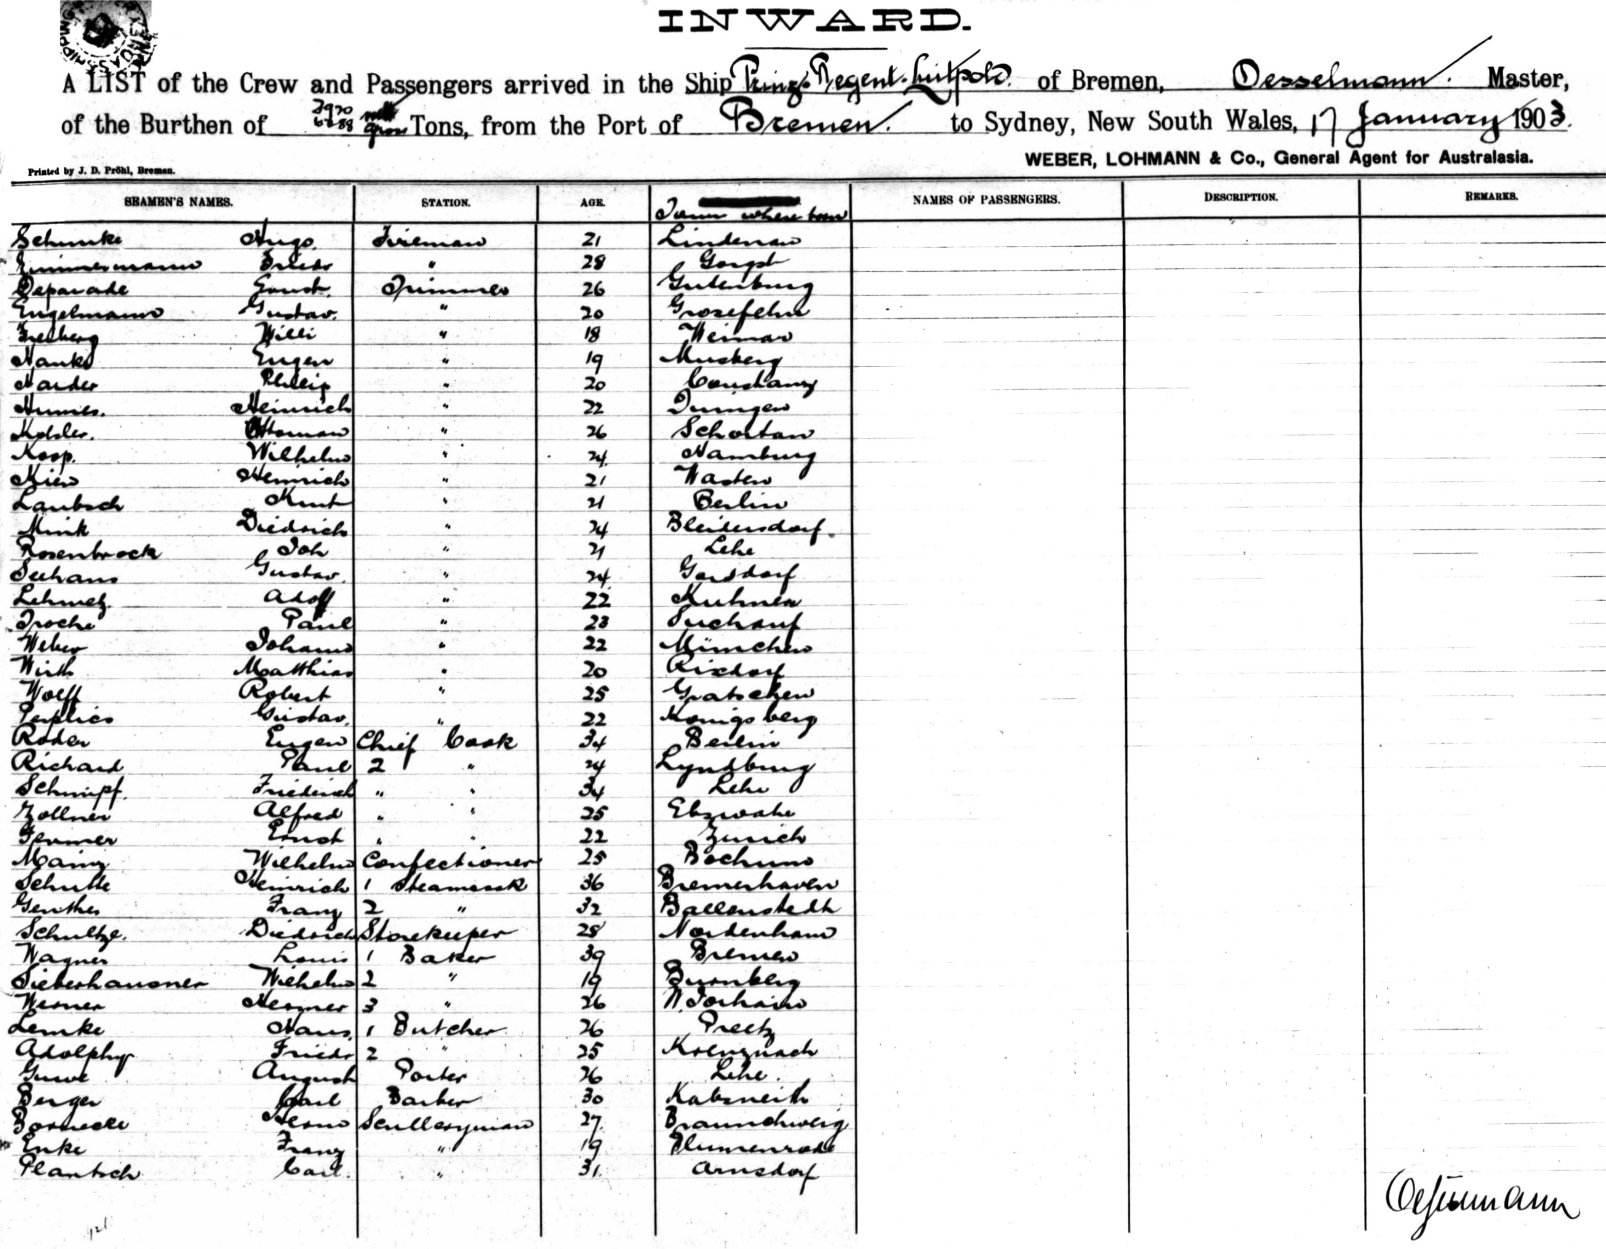 INWARD.
A LIST of the Crew and Passengers arrived in the Ship Prinz Regent Luitpold. of Bremen, Oesselmann. Master,
of the Burthen of 3970 nett 6288 gross Tons, from the Port of Bremen. to Sydney, New South Wales, 17 January 1903.
WEBER, LOHMANN & Co., General Agent for Australasia.
Printed by J. D. Pröhl, Bremen.
SEAMEN'S NAMES. STATION. AGE. Town where born NAMES OF PASSENGERS. DESCRIPTION. REMARKS.
Schunke Hugo. Fireman 21 Lindenau
Zimmermann Friedr " 28
Deparade Ernst. Trimmer 26 Gutenburg
Engelmann Gustav. " 20 Grosefehn
Freiberg Willi " 18 Weimar
Hanke Eugen " 19 Musberg
Harder Philip " 20 Constanz
Heinrich " 22
Kohler. Ottomar " 26
Koop. Wilhelm " 24 Hamburg
Heinrich " 21 Wasten
Laubsch Kurt " 21 Berlin
Mink Diedrich " 24 Bleidersdorf.
Rosenbrock Joh " 21 Lehe
Gustav. " 24 Gersdorf
Adolf " 22
Troche Paul " 23
Weber Johann " 22 München
Wirth Matthias " 20 Rixdorf
Wolff Robert " 25 Gratschen
Gustav. " 22 Konigsberg
Roder Eugen Chief Cook 34 Berlin
Richard Paul 2 " 24 Lyndburg
Schnipf. Friederich " " 34 Lehe
Zollner Alfred " " 25
Ernst " " 22 Zurich
Mainz Wilhelm Confectioner 25 Bochum
Schulte Heinrich 1 Steamcook 36 Bremerhaven
Genthes Franz 2 " 32 Ballenstedt
Schultze. Diedrich Storekeeper 28 Nordenham
Wagner Louis 1 Baker 39 Bremen
Sieberhausner Wilhelm 2 " 19 Burnberg
Werner Hermer 3 " 26
Lemke Hans. 1 Butcher 26 Preetz
Adolphy Friedr 2 " 25 Kreuznach
August Porter 26 Lehe.
Berger Carl Barber 30
Bornecke Sculleryman 27. Braunchweig
Enke Franz " 19 Blumenrode
Plantsch Carl. " 31 Arnsdorf